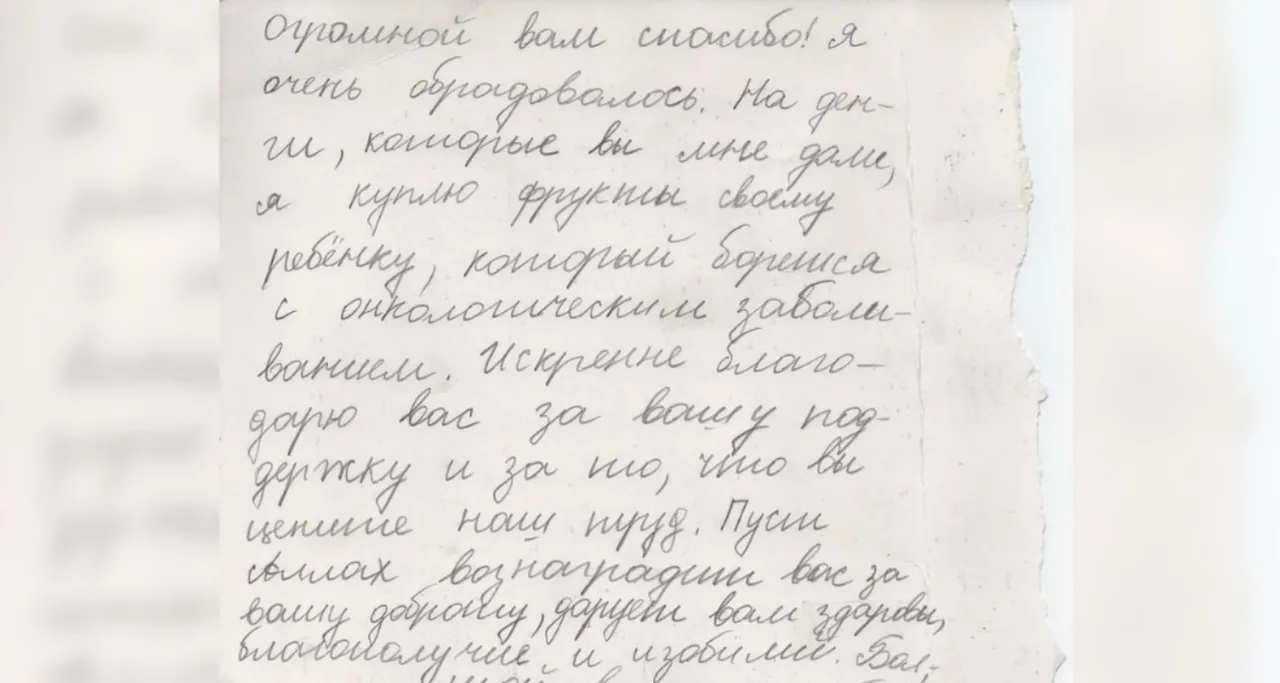 Огромной вам спасибо! Я
очень обрадовалось. На ден-
ги, которые вы мне дали,
я куплю фрукты своему
ребёнку, который борется
с онкологическим заболи-
ванием. Искренне благо-
дарю вас за вашу под-
держку и за то, что вы
цените наш труд. Пусти
Аллах вознаградит вас за
вашу доброту, дарует вам здаровы,
благополучие и изобилий. Бол-